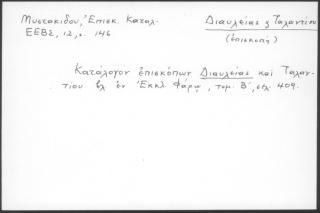 Μυστακίδου, Ἐπισκ. Καταλ.
ΕΕΒΣ, 12, σ. 146
Διαυλείας & Ταλαντίου
(ἐπισκοπή)
Κατάλογον ἐπισκόπων Διαυλείας καὶ Ταλαν-
τίου βλ ἐν Ἐκκλ. Φάρῳ, τομ. Β΄, σελ. 409.